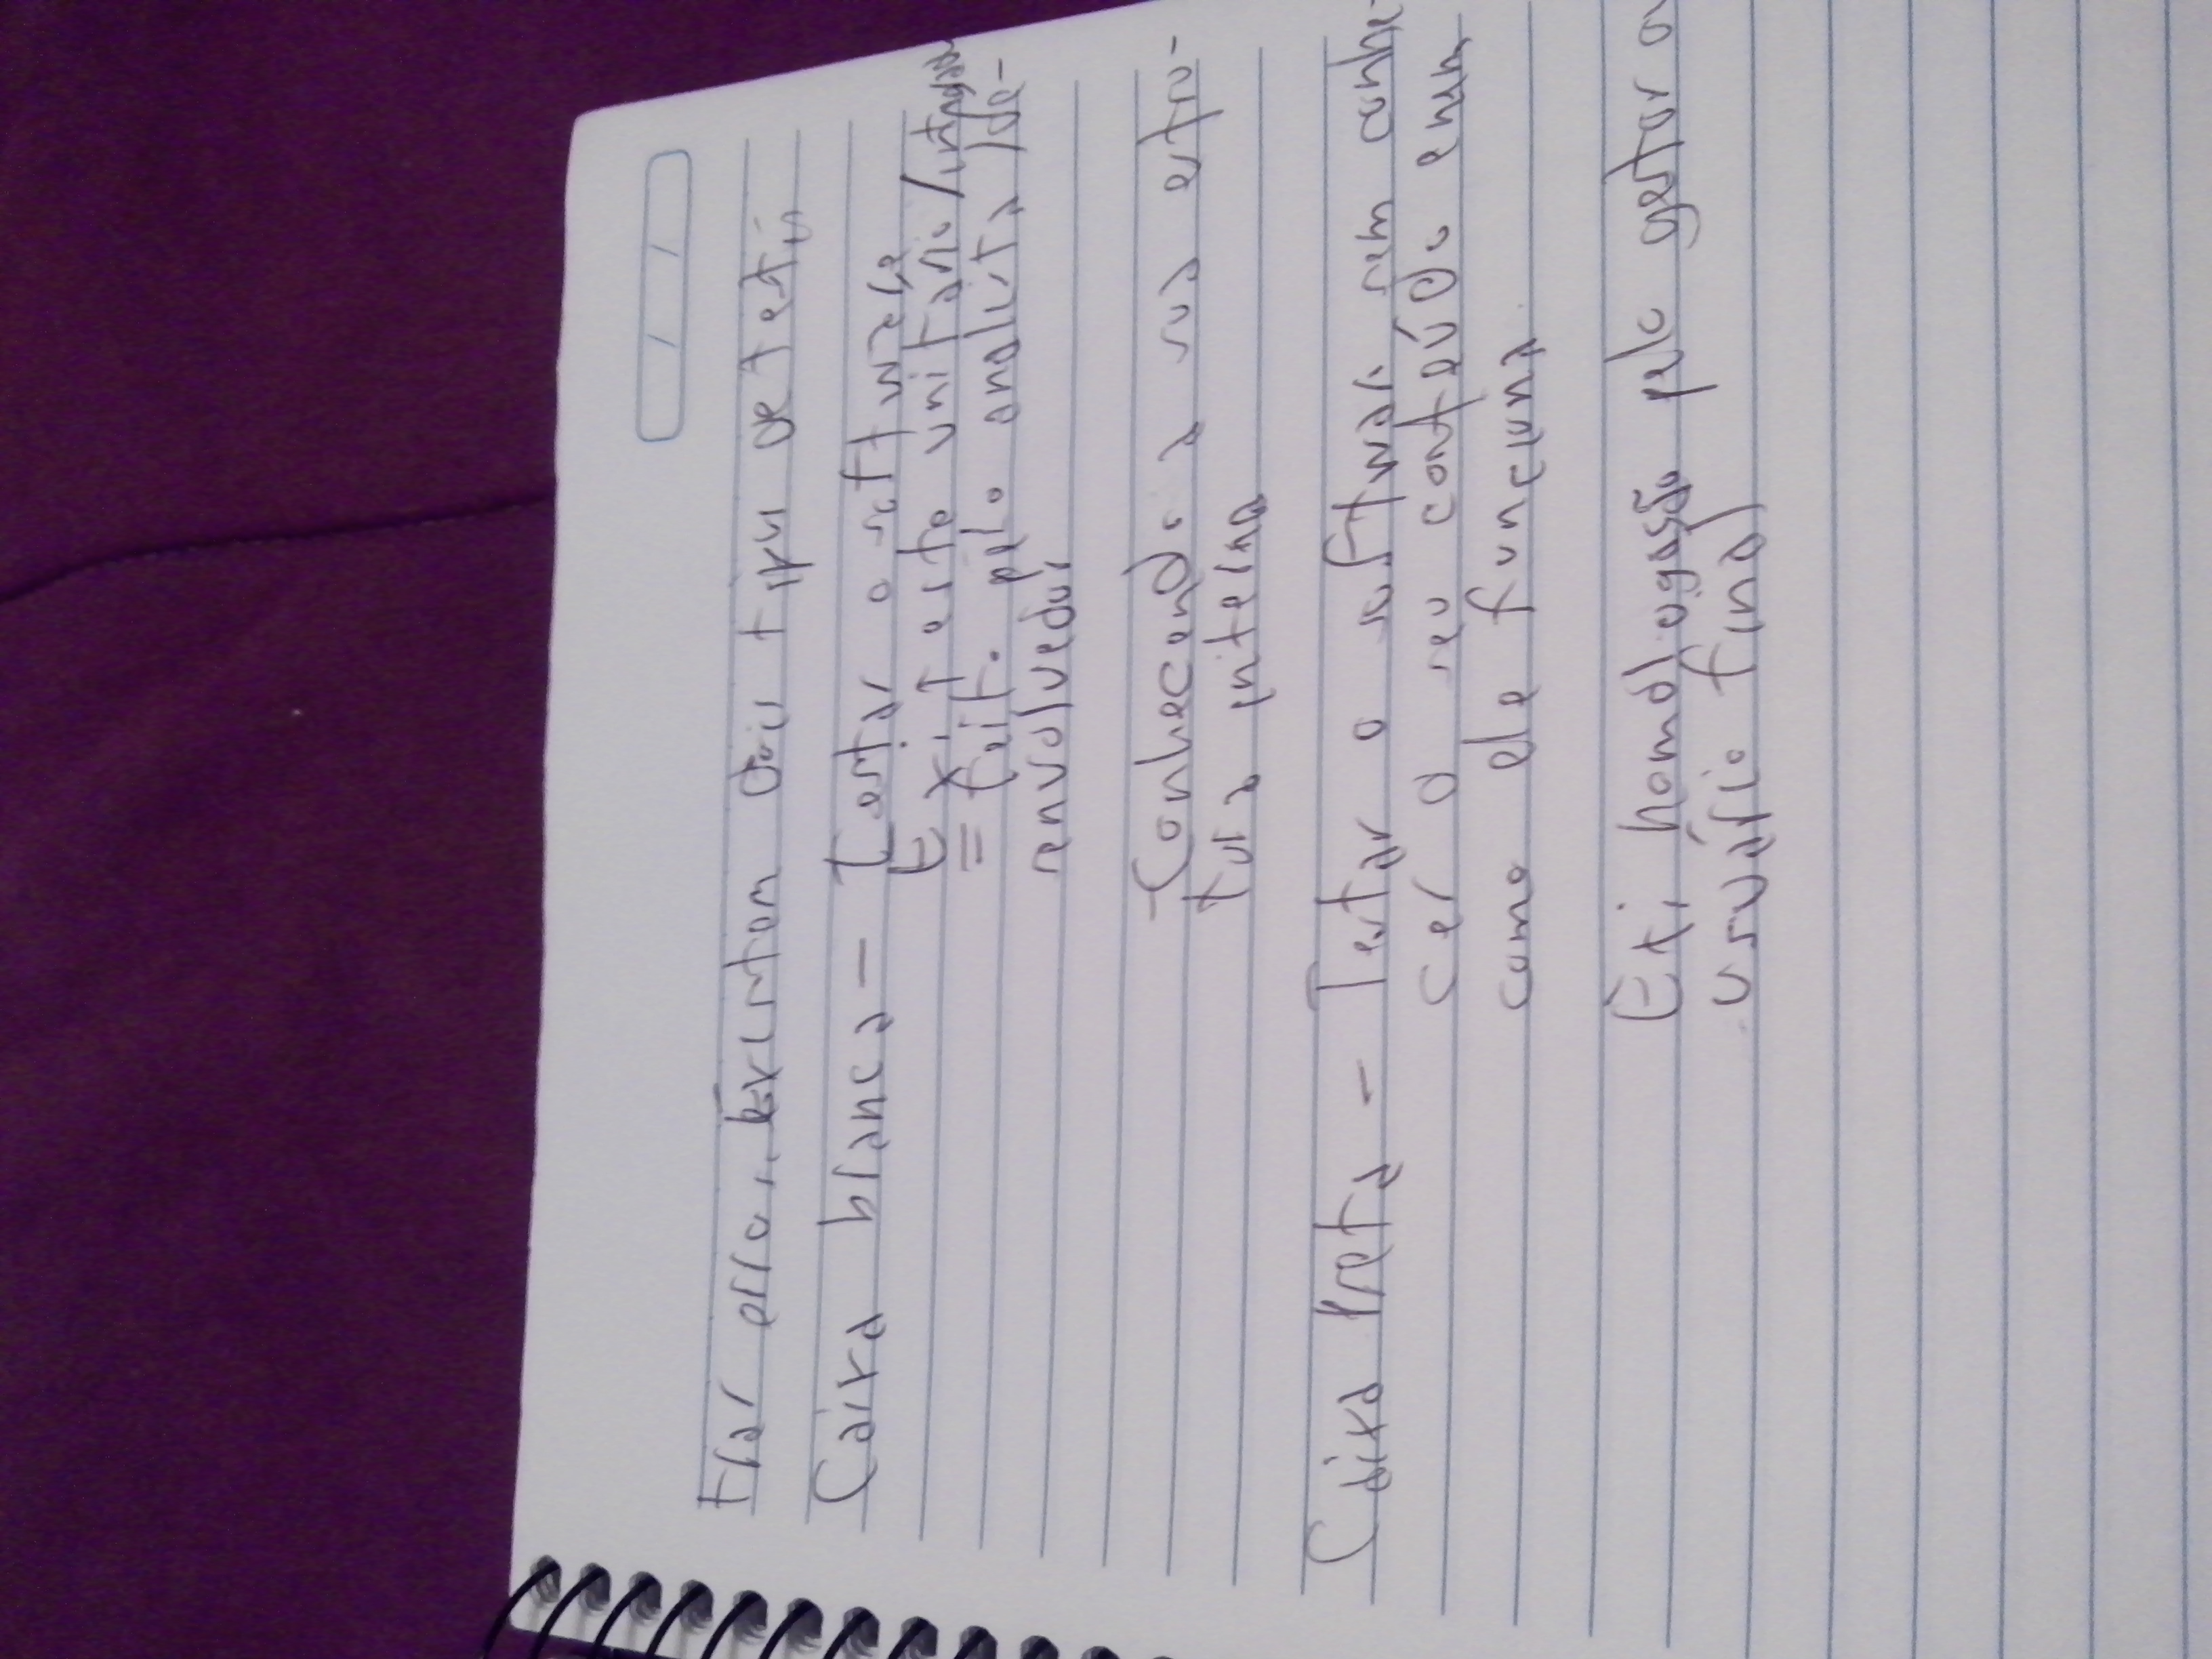 trar erros. Existem dois tipos de testes
Caixa branca - Testar o software
Ex: Teste unitário /
= feito pelo analista /de-
senvolvedor
-Conhecendo a sua estru-
tura interna
Caixa Preta - Testar o software sem conhe-
cer o seu conteúdo enem
como ele funciona.
Ex: homologasão pelo gestor ou
usuário final